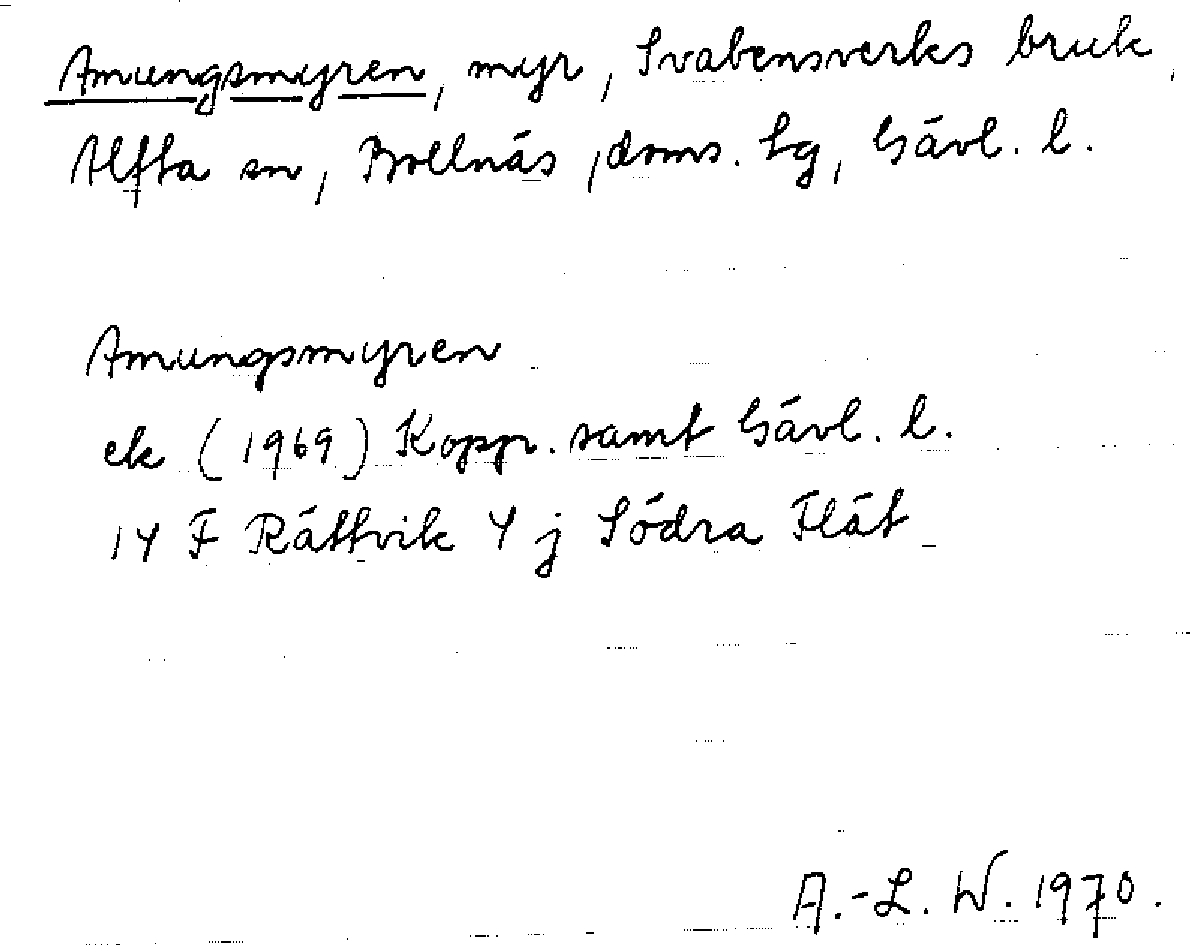 Amungsmyren, myr, Svabensverks bruk,
Alfta sn, Bollnäs, doms. lg, Gävl. l.
Amungsmyren
ek (1969) Kopp. samt Gävl. l.
14 F Rättvik 4 j Södra Flät
A.-L. W. 1970.